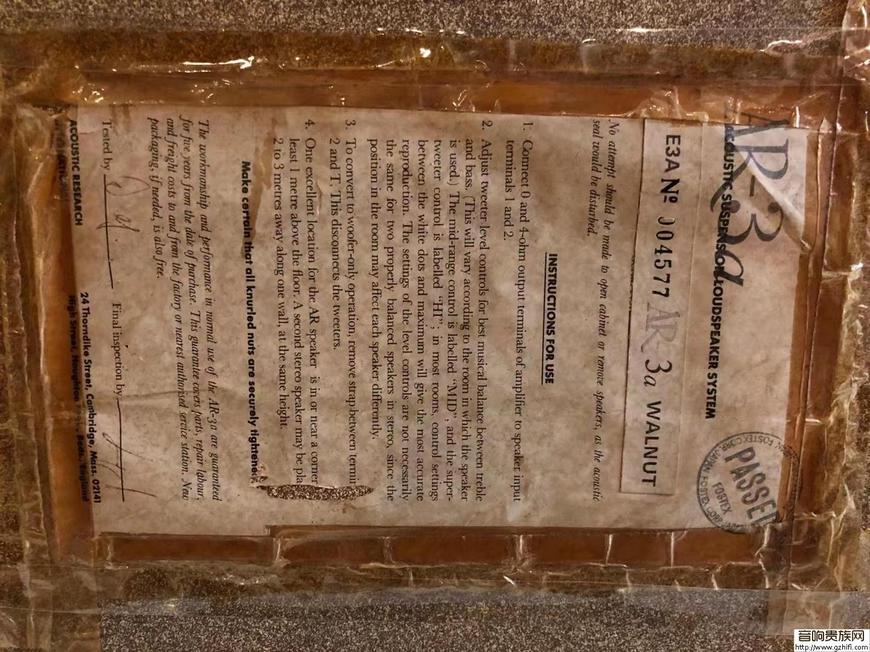 AR-3a
ACOUSTIC SUSPENSION LOUDSPEAKER SYSTEM
PASSED
FOSTEX
E3A No 004577 AR 3a WALNUT
No attempt should be made to open cabinet or remove speakers, as the acoustic
seal would be disturbed.
INSTRUCTIONS FOR USE
1. Connect 0 and 4-ohm output terminals of amplifier to speaker input
terminals 1 and 2.
2. Adjust tweeter level controls for best musical balance between treble
and bass. (This will vary according to the room in which the speaker
is used.) The mid-range control is labelled "MID", and the super-
tweeter control is labelled "HI"; in most rooms, control settings
between the white dots and maximum will give the most accurate
reproduction. The settings of the level controls are not necessarily
the same for two properly balanced speakers in stereo, since the
position in the room may affect each speaker differently.
3. To convert to woofer-only operation, remove strap between termin
2 and T. This disconnects the tweeters.
4. One excellent location for the AR speaker is in or near a corner
least 1 metre above the floor. A second stereo speaker may be pla
2 to 3 metres away along one wall, at the same height.
Make certain that all knurled nuts are securely tightened.
The workmanship and performance in normal use of the AR-3a are guaranteed
for five years from the date of purchase. This guarantee covers parts, repair labour,
and freight costs to and from the factory or nearest authorised service station. New
packaging, if needed, is also free.
Tested by Final inspection by
ACOUSTIC RESEARCH 24 Thorndike Street, Cambridge, Mass. 02141
High Street, Houghton Beds. England
音响贵族网
http://www.gzhifi.com